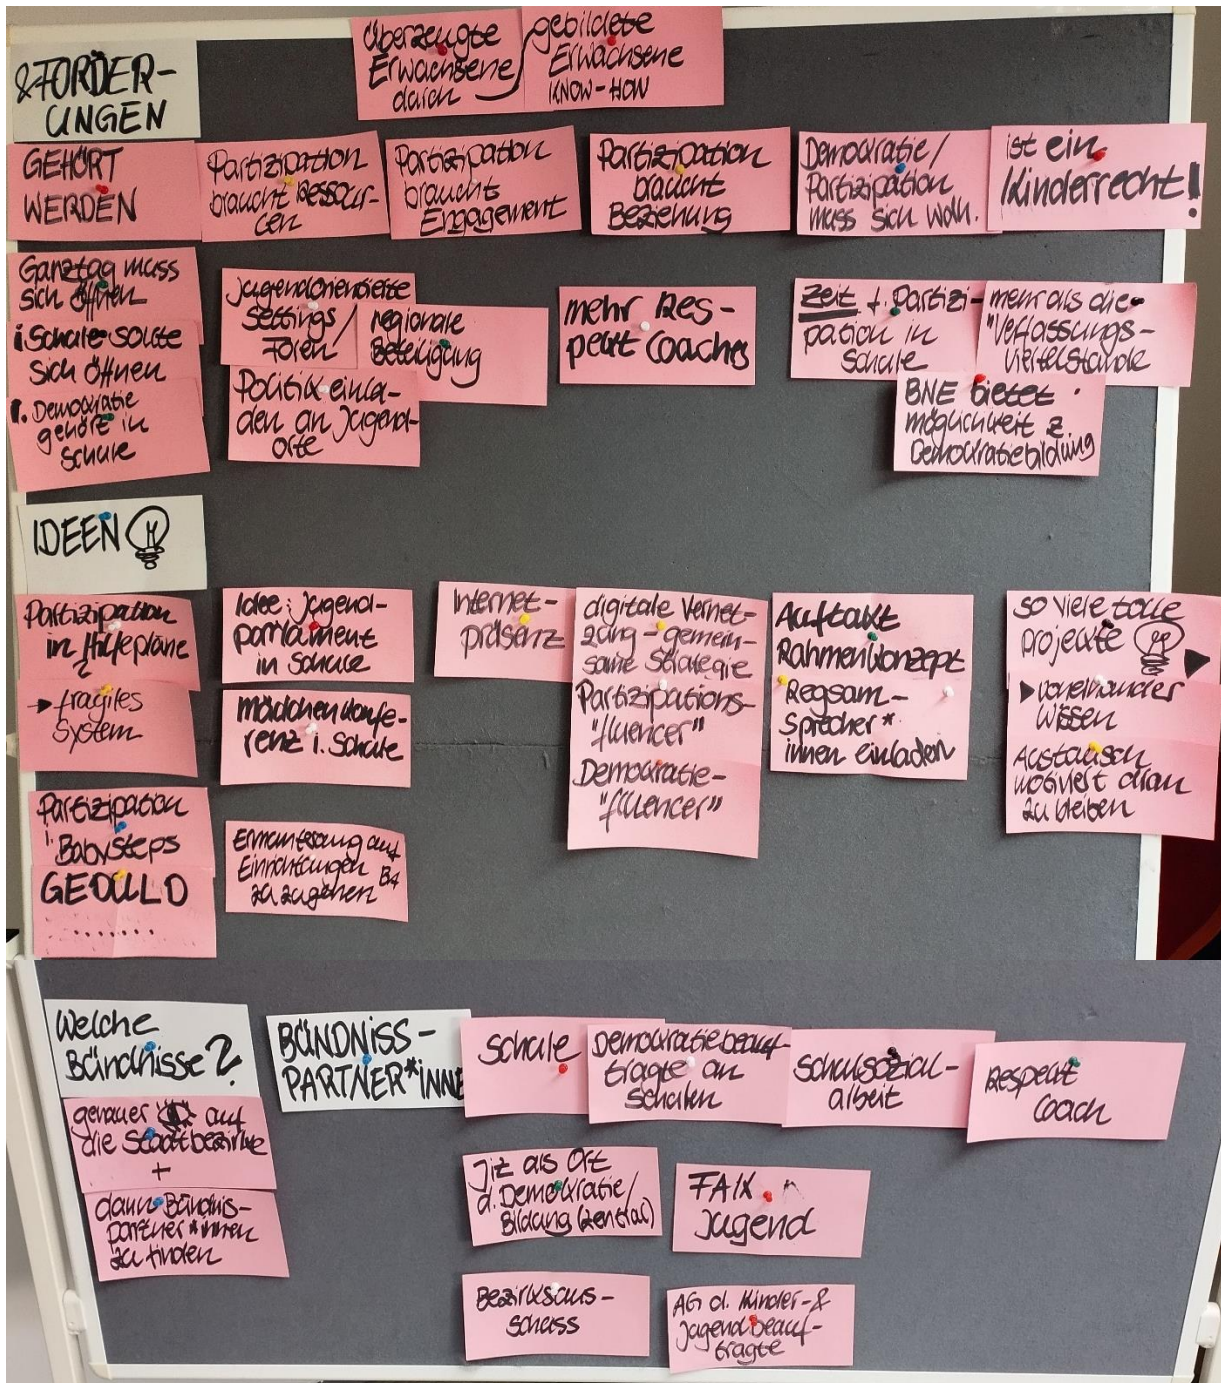 &FORDER-
UNGEN
überzeugte
Erwachsene
durch
gebildete
Erwachsene
KNOW-HOW
GEHÖRT
WERDEN
Partizipation
braucht Ressour-
cen
Partizipation
braucht
Engagement
Partizipation
braucht
Beziehung
Demokratie/
Partizipation
muss sich wdh.
ist ein
Kinderrecht!
Ganztag muss
sich öffnen
Schule sollte
sich öffnen
Demokratie
gehört in
Schule
Jugendorientierte
Settings/
Foren
regionale
Beteiligung
Politik einla-
den an Jugend-
orte
mehr Res-
pekt Coaches
Zeit f. Partizi-
pation in
Schule
mehr als die
"Verfassungs-
viertelstunde
BNE bietet
möglichkeit z.
Demokratiebildung
IDEEN
Partizipation
in Hilfepläne
?
→ fragiles
System
Partizipation
i. Babysteps
GEDULD
.......
Idee: Jugend-
parlament
in Schule
Mädchenkonfe-
renz i. Schule
Ermunterung auf
Einrichtungen BA
zu zugehen
Internet-
präsenz
digitale Vernet-
zung - gemein-
same Strategie
Partizipations-
"fluencer"
Demokratie-
"fluencer"
Auftakt
Rahmenkonzept
Regsam-
Sprecher*
innen einladen
so viele tolle
projekte
voneinander
wissen
Austausch
motiviert dran
zu bleiben
Welche
Bündnisse?
genauer auf
die Stadtbezirke
+
dann Bündnis-
partner*innen
zu finden
BÜNDNISS-
PARTNER*INNE
Schule
Demokratiebeauf-
tragte an
Schulen
Schulsozial-
arbeit
Respekt
Coach
Jiz als Ort
d. Demokratie/
Bildung (zentral)
FAIX
Jugend
Bezirksaus-
schuss
AG d. Kinder-&
Jugendbeauf-
tragte